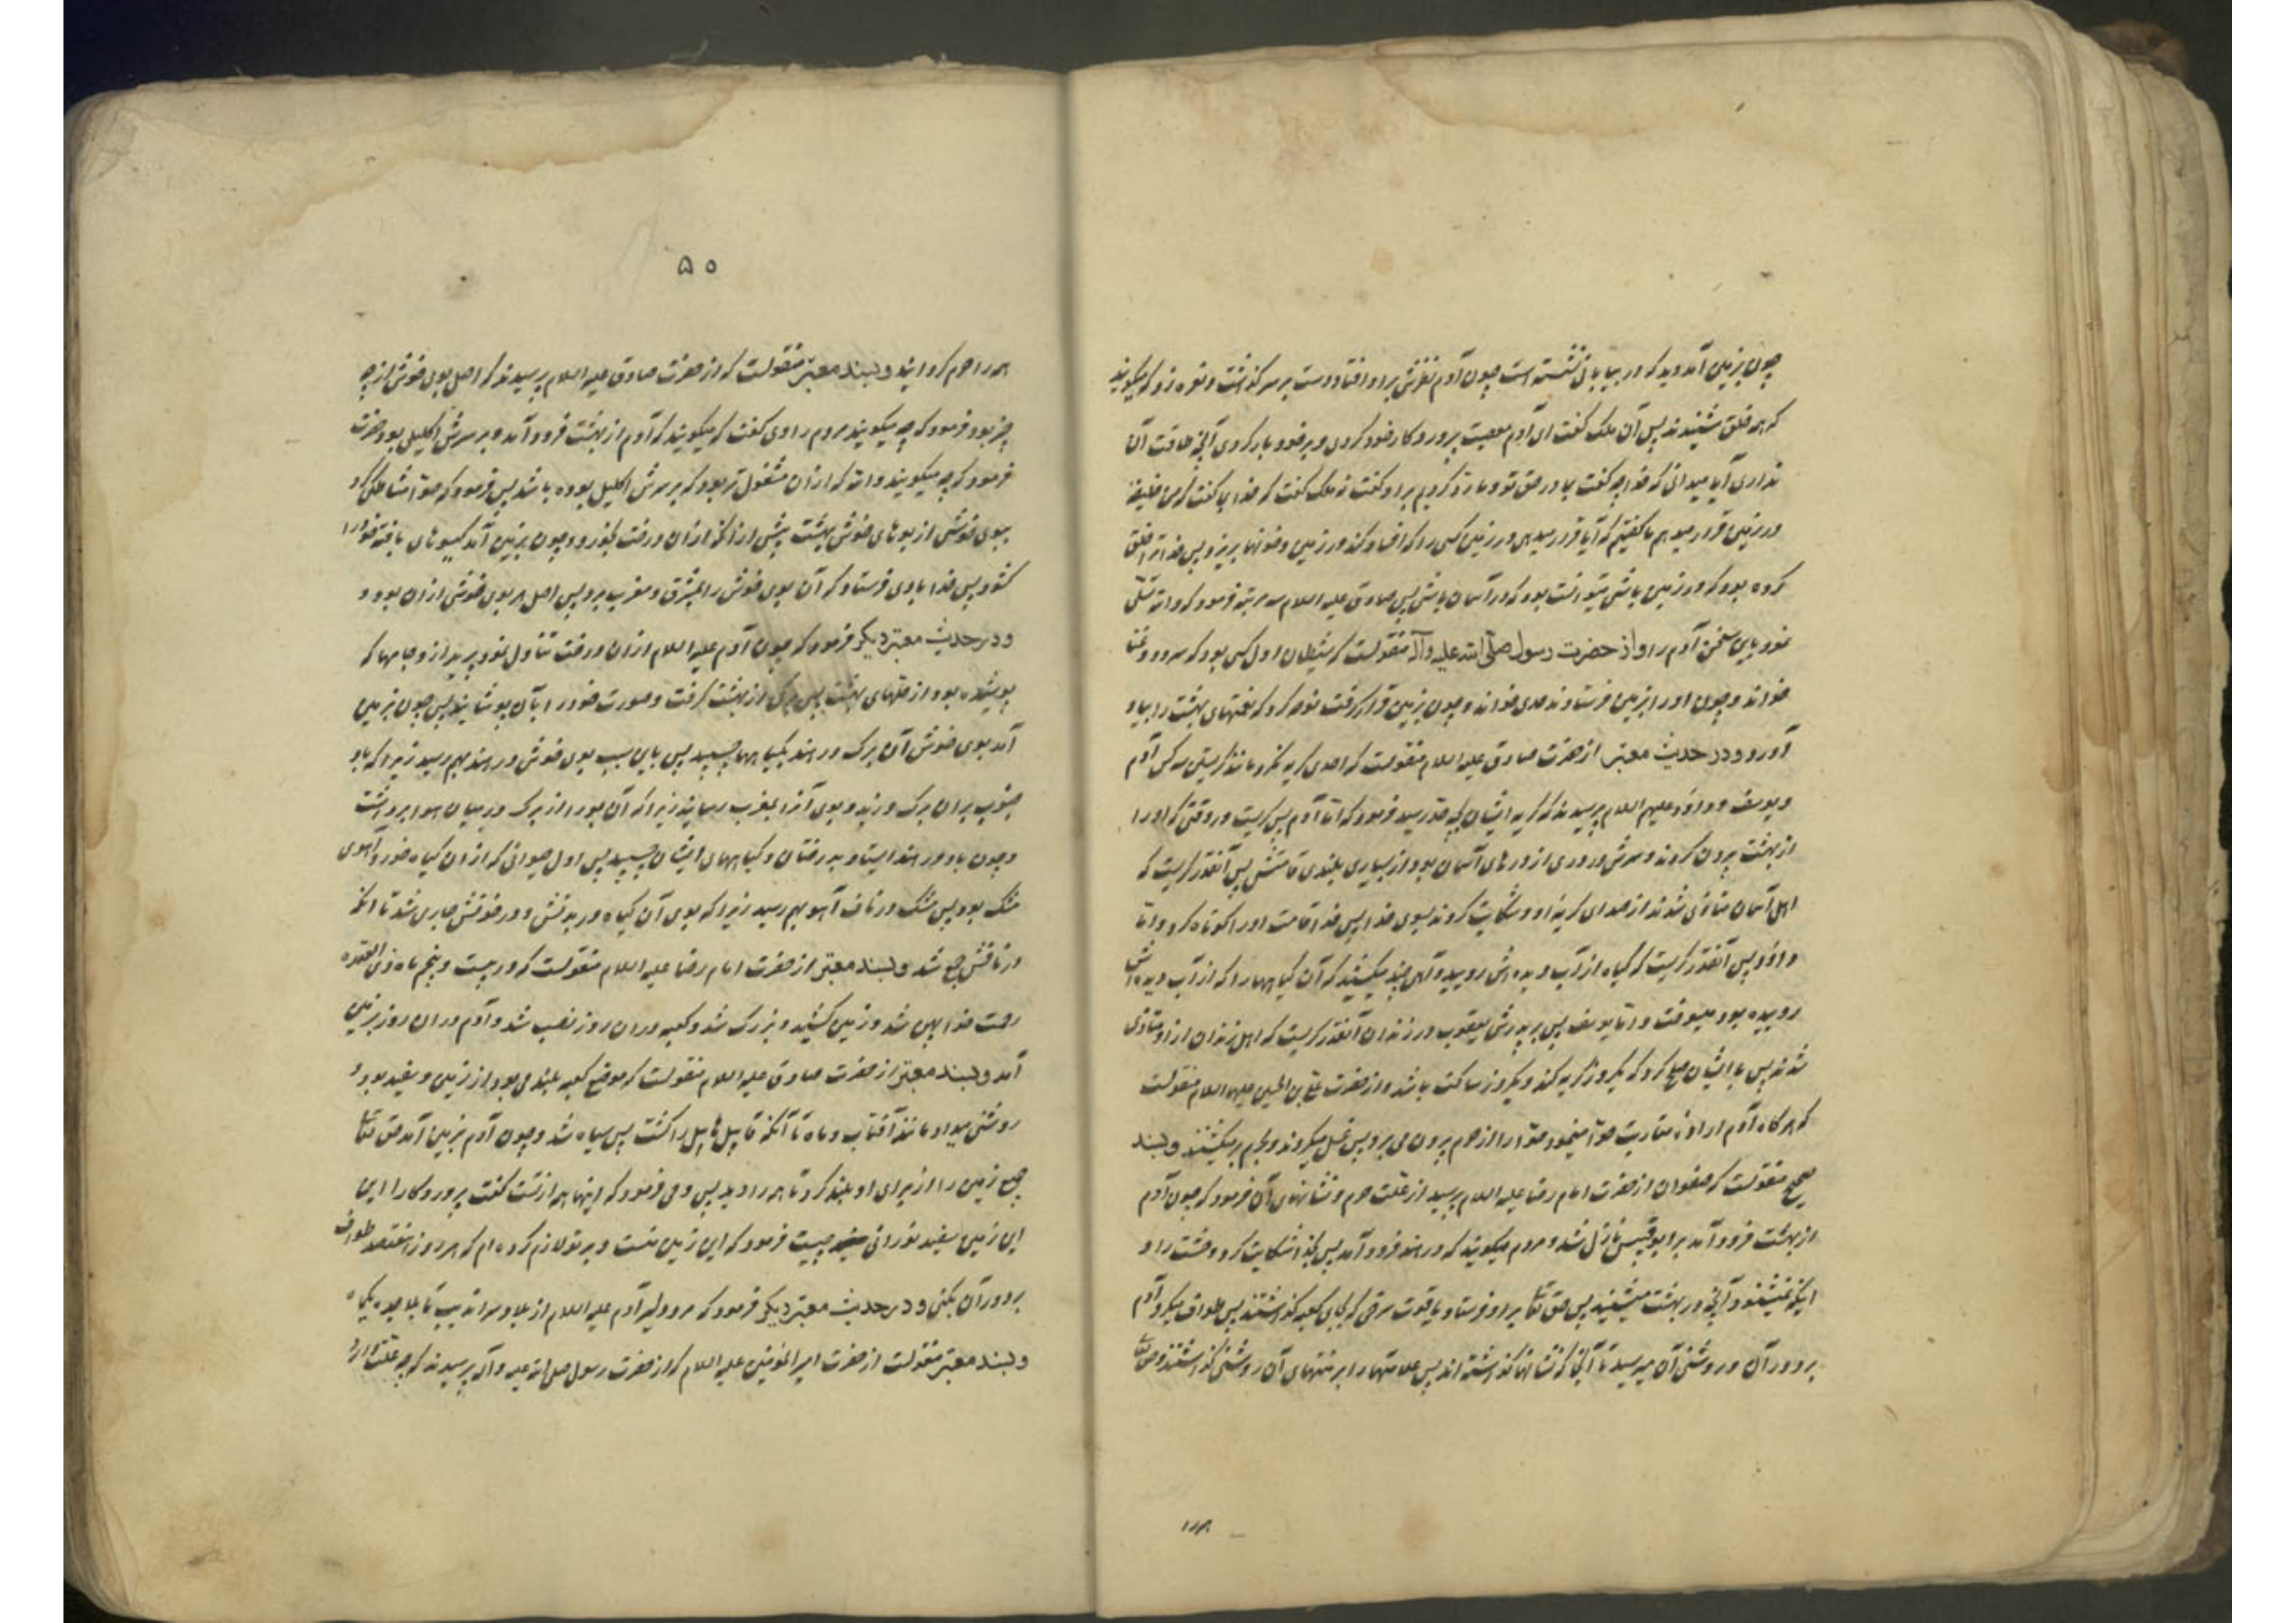 چون بزمین آمد دید که در بیابانی نشسته است چون آدم نظرش بر او افتاد دست بر سر گذاشت و نعره زد که میگویند
که همه خلق شنیدند پس آن ملک گفت ای آدم معصیت پروردگار خود کردی و بر خود بار کردی آنچه طاقت آنرا
نداری آیا میدانی که خدا چه گفت بما در حق تو و ما رد کردیم بر او گفت نه ملک گفت که خدا بما گفت که من خلیفه
در زمین قرار میدهم ما گفتیم که آیا قرار میدهی در زمین کسی را که افساد کند در زمین و خونها بریزد پس خدا ترا خلق
کرده بود که در زمین باشی نمیتوانست بود که در آسمان باشی پس صادق علیه السلام سه مرتبه فرمود که والله تسلی
نمود باین سخن آدم را و از حضرت رسول صلی الله علیه و آله منقولست که شیطان اول کسی بود که سرود و غنا
خواند و چون او را بزمین فرستادند حدی خواند و چون بزمین قرار گرفت نوحه کرد که نعمتهای بهشت را بیاد
آورد و در حدیث معتبر از حضرت صادق علیه السلام منقولست که احدی گریه نکرد مانند گریستن سه کس آدم
و یوسف و داود علیهم السلام پرسیدند که گریه ایشان بچه قدر رسید فرمود که اما آدم پس گریست در وقتی که او را
از بهشت بیرون کردند و سرش در دری از درهای آسمان بود از بسیاری بلندی قامتش پس آنقدر گریست که
اهل آسمان متأذی شدند از صدای گریه او و شکایت کردند بسوی خدا پس خدا قامت او را کوتاه کرد و اما
داود پس آنقدر گریست که گیاه از آب دیده اش روییده و آهی چند میکشید که آن گیاهها را که از آب دیده اش
روییده بود میسوخت و اما یوسف پس بر پدرش یعقوب در زندان آنقدر گریست که اهل زندان از او متأذی
شدند پس با ایشان صلح کرد که یکروز گریه کند و یکروز ساکت باشد و از حضرت علی بن الحسین علیهما السلام منقولست
که هرگاه آدم اراده مقاربت حوا مینمود حوا را از حرم بیرون می برد پس غسل میکردند و بحرم برمیگشتند و بسند
صحیح منقولست که صفوان از حضرت امام رضا علیه السلام پرسید از علت حرم و نشانهای آن فرمود که چون آدم
از بهشت فرود آمد بر ابوقبیس نازل شد و مردم میگویند که در هند فرود آمد پس بخدا شکایت کرد وحشت را و
اینکه نمیشنود آنچه در بهشت میشنید پس حق تعالی بر او فرستاد یاقوت سرخی که بجای کعبه گذاشتند پس طواف میکرد آدم
بر دور آن و روشنی آن میرسید تا آنجا که نشانها گذاشته اند پس علامتها را بر منتهای آن روشنی گذاشتند و حق تعالی
۵۰
همه را حرم گردانید و بسند معتبر منقولست که از حضرت صادق علیه السلام پرسیدند که اصل بوی خوش از چه
چیز بود فرمود که چه میگویند مردم راوی گفت که میگویند که آدم از بهشت فرود آمد و بر سرش اکلیلی بود حضرت
فرمود که چه میگویند والله که از آن مشغول تر بود که بر سرش اکلیل بوده باشد پس فرمود که حوا مشاطگی کرد
ببوی خوشی از بوهای خوش بهشت پیش از آنکه از آن درخت بخورد و چون بزمین آمد گیسوهای بافته خود را
گشود پس خدا بادی فرستاد که آن بوی خوش را بمشرق و مغرب برد پس اصل هر بوی خوشی از آن بود و
و در حدیث معتبر دیگر فرمود که چون آدم علیه السلام از آن درخت تناول نمود پرید از او جامها که
پوشیده بود از حلهای بهشت پس برگی از بهشت گرفت و عورت خود را بآن پوشانید پس چون بزمین
آمد بوی خوش آن برگ در هند بگیاهها چسبید پس باین سبب بوی خوش در هند بهم رسید زیرا که باد
جنوب بر آن برگ وزید و بوی آنرا بمغرب رسانید زیرا که آن بو را از برگ در میان هوا برداشت
و چون باد در هند ایستاد بدرختان و گیاههای ایشان چسبید پس اول حیوانی که از آن گیاه خورد آهوی
مشک بود پس مشک در ناف آهو بهم رسید زیرا که بوی آن گیاه در بدنش و در خونش جاری شد تا آنکه
در نافش جمع شد و بسند معتبر از حضرت امام رضا علیه السلام منقولست که در بیست و پنجم ماه ذی القعده
رحمت خدا پهن شد و زمین کشیده و بزرگ شد و کعبه در آن روز نصب شد و آدم در آن روز بزمین
آمد و بسند معتبر از حضرت صادق علیه السلام منقولست که موضع کعبه بلندی بود از زمین و سفید بود و
روشنی میداد مانند آفتاب و ماه تا آنکه قابیل هابیل را کشت پس سیاه شد و چون آدم بزمین آمد حق تعالی
جمیع زمین را از برای او بلند کرد تا همه را دید پس وحی فرمود که اینها همه از تست گفت پروردگارا این
این زمین سفید نورانی چیست فرمود که این زمین منست و بر تو لازم کرده ام که هر روز هفتصد طواف
بر دور آن بکنی و در حدیث معتبر دیگر فرمود که آدم علیه السلام از
و بسند معتبر منقولست از حضرت امیر المؤمنین علیه السلام که از حضرت رسول صلی الله علیه و آله پرسیدند که بچه علت